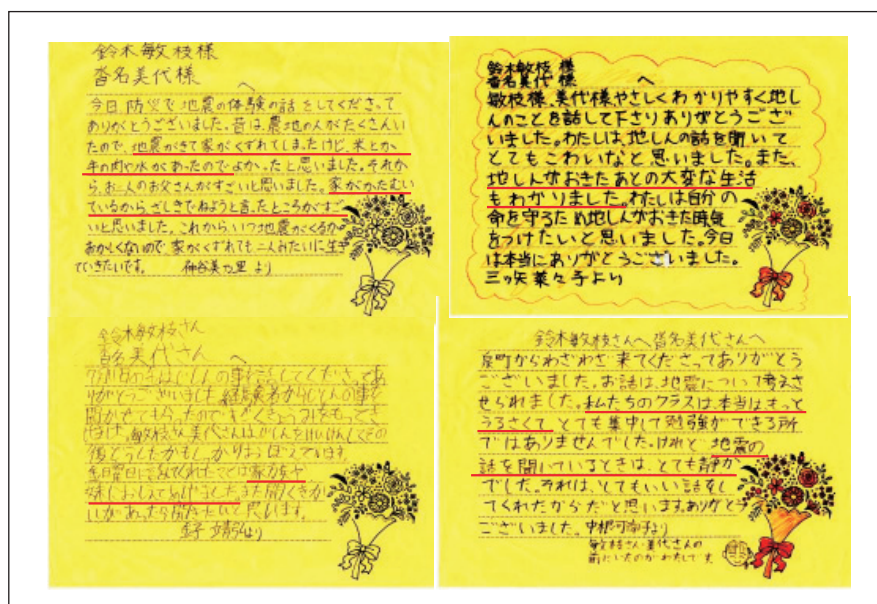 鈴木敏枝様
沓名美代様
へ
今日、防災で地震の体験の話をしてくださって
ありがとうございました。昔は、農地の人がたくさんい
たので、地震がきて家がくずれてしまったけど、米とか
牛の肉や水があったのでよかったと思いました。それか
ら、お二人のお父さんがすごいと思いました。家がかたむい
ているから、ざしきでねようと言ったところがすご
いと思いました。これから、いつ地震がくるか
おかしくないので、家がくずれても二人みたいに生き
ていきたいです。
より
鈴木敏枝 様
沓名美代 様
へ
敏枝様、美代様やさしくわかりやすく地し
んのことを話して下さりありがとうござ
いました。わたしは、地しんの話を聞いて
とてもこわいなと思いました。また、
地しんがおきたあとの大変な生活
もわかりました。わたしは自分の
命を守るため地しんがおきた時気
をつけたいと思いました。今日
は本当にありがとうございました。
三ッ矢菜々子より
鈴木敏枝さん
沓名美代さん
へ
りがとうございました。経験者からじしんの事を
聞かせてもらったので
敏枝さん美代さんはじしんをけいけんしてその
後どうしたかもしっかりおぼえています。
家族や
妹におしえてあげました。また聞くきか
いがあったら聞きたいと思います。
より
鈴木敏枝さんへ沓名美代さんへ
町からわざわざ来てくださってありがとう
ございました。お話は、地震について考えさ
せられました。私たちのクラスは、本当はもっと
うるさくて、とても集中して勉強ができる所
ではありませんでした。けれど、地震の
話を聞いているときは、とても静か
でした。それは、とてもいい話をし
てくれたからだと思います。ありがとう
ございました。中根可南子より
敏枝さん・美代さんの
前にいたのがわたしです。